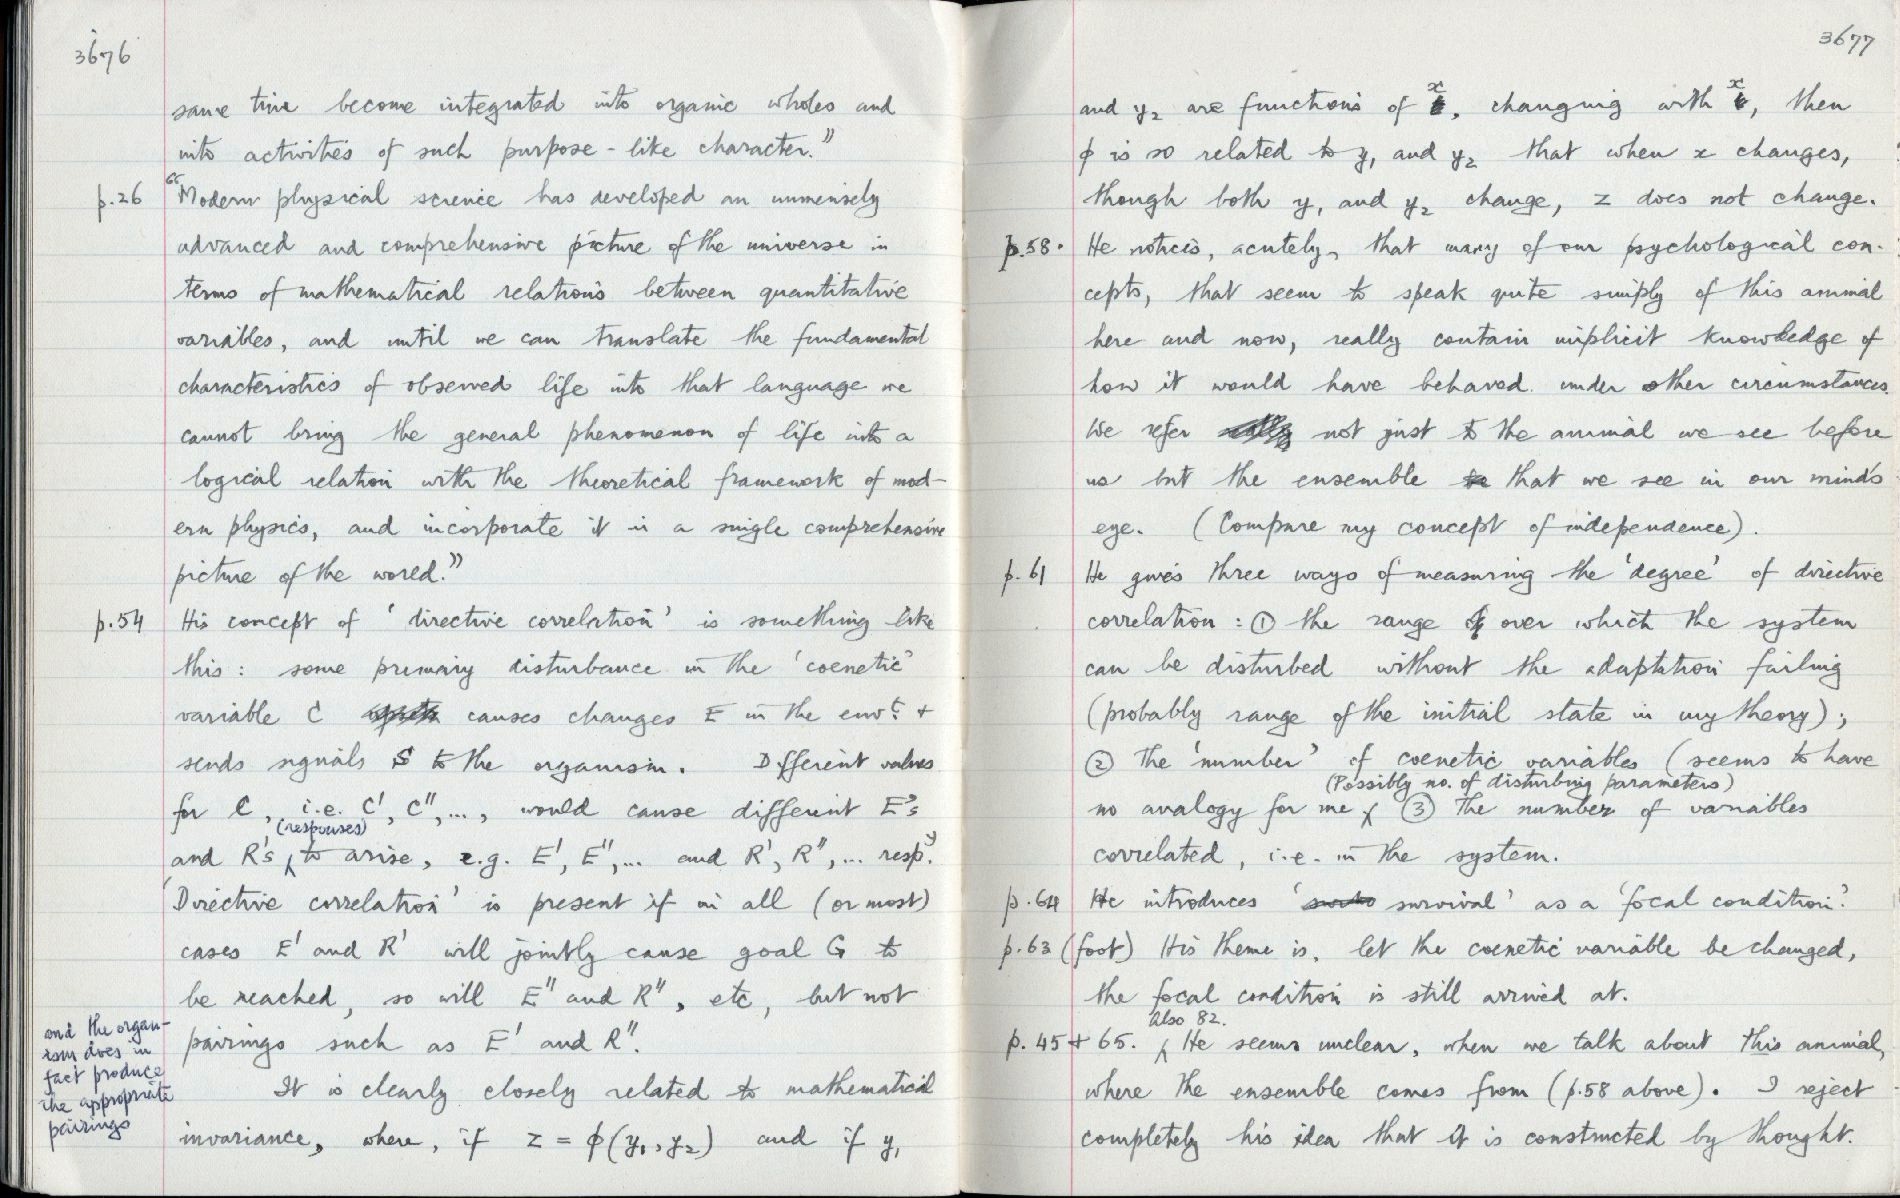 3676
same time become integrated into organic wholes and
into activities of such purpose-like character."
p.26 "Modern physical science has developed an immensely
advanced and comprehensive picture of the universe in
terms of mathematical relations between quantitative
variables, and until we can translate the fundamental
characteristics of observed life into that language we
cannot bring the general phenomenon of life into a
logical relation with the theoretical framework of mod-
ern physics, and incorporate it in a single comprehensive
picture of the world."
p.54 His concept of 'directive correlation' is something like
this: some primary disturbance in the 'coenetic'
variable C causes changes E in the envt. +
sends signals S to the organism. Different values
for C, i.e. C', C'',..., would cause different E's
(responses)
and R's to arise, e.g. E', E'',... and R', R'',... resp.y
'Directive correlation' is present if in all (or most)
cases E' and R' will jointly cause goal G to
be reached, so will E'' and R'', etc, but not
pairings such as E' and R''.
and the organ-
ism does in
fact produce
the appropriate
pairings
It is clearly closely related to mathematical
invariance, where, if z = φ(y₁, y₂) and if y₁
3677
and y₂ are functions of x, changing with x, then
φ is so related to y₁ and y₂ that when x changes,
though both y₁ and y₂ change, z does not change.
p.58. He notices, acutely, that many of our psychological con-
cepts, that seem to speak quite simply of this animal
here and now, really contain implicit knowledge of
how it would have behaved under other circumstances.
We refer not just to the animal we see before
us but the ensemble that we see in our mind's
eye. (Compare my concept of independence).
p.61 He gives three ways of measuring the 'degree' of directive
correlation: ① the range over which the system
can be disturbed without the adaptation failing
(probably range of the initial state in my theory);
② The 'number' of coenetic variables (seems to have
(Possibly no. of disturbing parameters)
no analogy for me; ③ The number of variables
correlated, i.e. in the system.
p.64 He introduces 'survival' as a 'focal condition'.
p.63 (foot) His theme is, let the coenetic variable be changed,
the focal condition is still arrived at.
Also 82.
p.45 + 65. He seems unclear, when we talk about this animal,
where the ensemble comes from (p.58 above). I reject
completely his idea that it is constructed by thought.